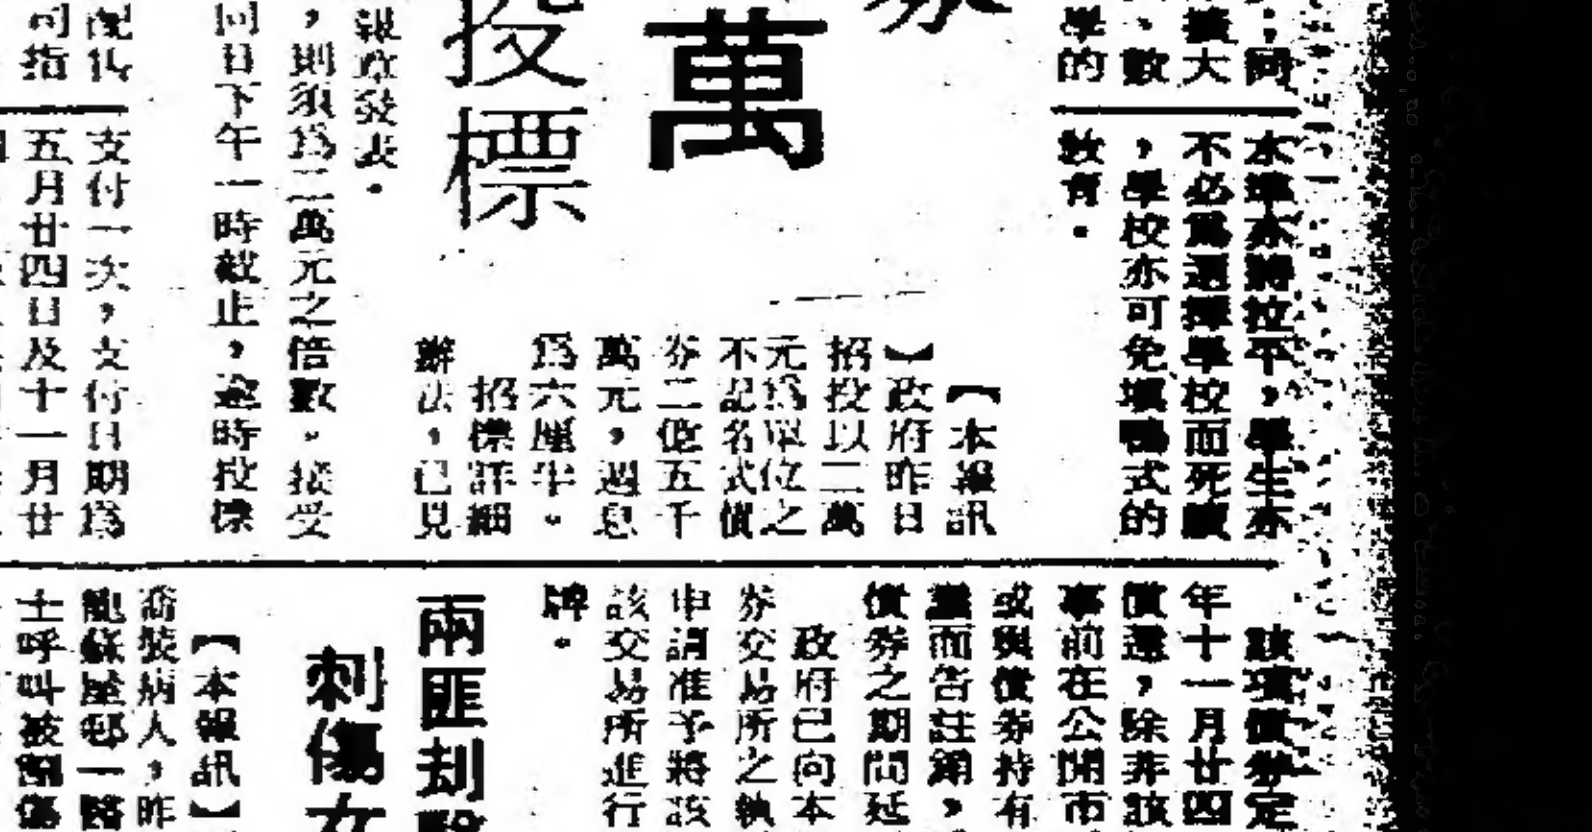 ；同
擴大
、數
學的
水準亦將拉平，學生亦
不必為選擇學校而死讀
，學校亦可免填鴨式的
教育。
券
萬
投標
【本報訊
】政府昨日
招投以二萬
元為單位之
不記名式債
券二億五千
萬元，週息
為六厘半。
招標詳細
辦法，已見
報章發表。
，則須為二萬元之倍數。接受
同日下午一時截止，逾時投標
配售
支付一次，支付日期為
司指
五月廿四日及十一月廿
該項債券定
年十一月廿四
償還，除非該
事前在公開市
或與債券持有
量而告註銷，
債券之期間延
政府已向本
券交易所之執
申請准予將該
該交易所進行
牌。
兩匪刦
刺傷女
【本報訊】
喬裝病人，昨
龍蘇屋邨一醫
士呼叫被匪傷